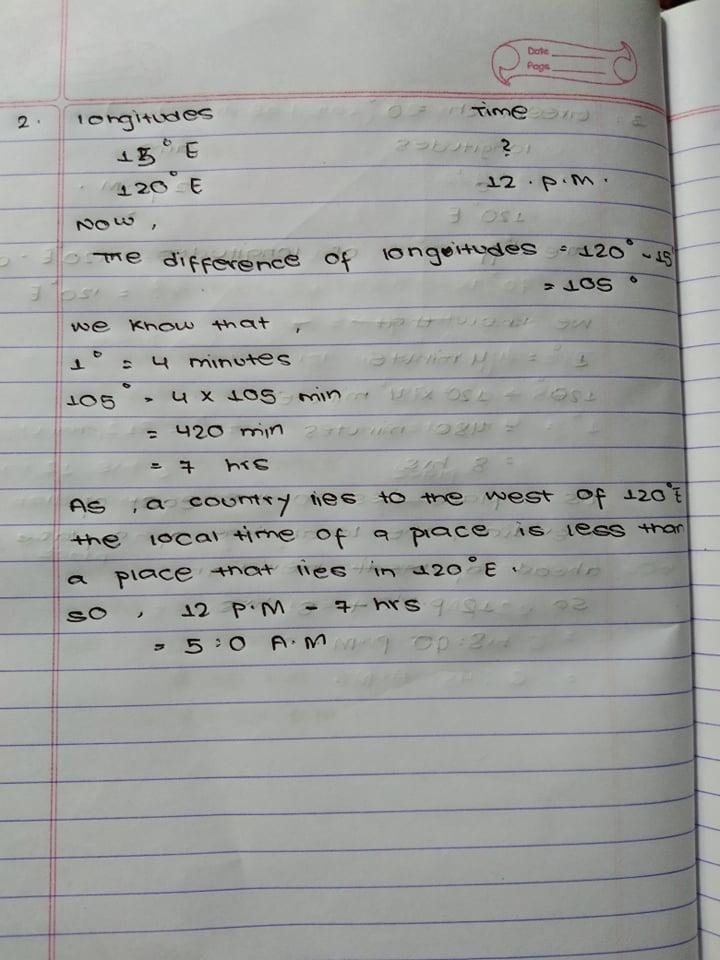 Date
Page
2. longitudes Time
15° E ?
120° E 12 . P.M.
NOW ,
The difference of longitudes = 120° - 15°
= 105°
we know that ,
1° = 4 minutes
105° = 4 x 105 min
= 420 min
= 7 hrs
As , a country lies to the west of 120°E
the local time of a place is less than
a place that lies in 120°E .
so , 12 P.M - 7 hrs
= 5:0 A.M